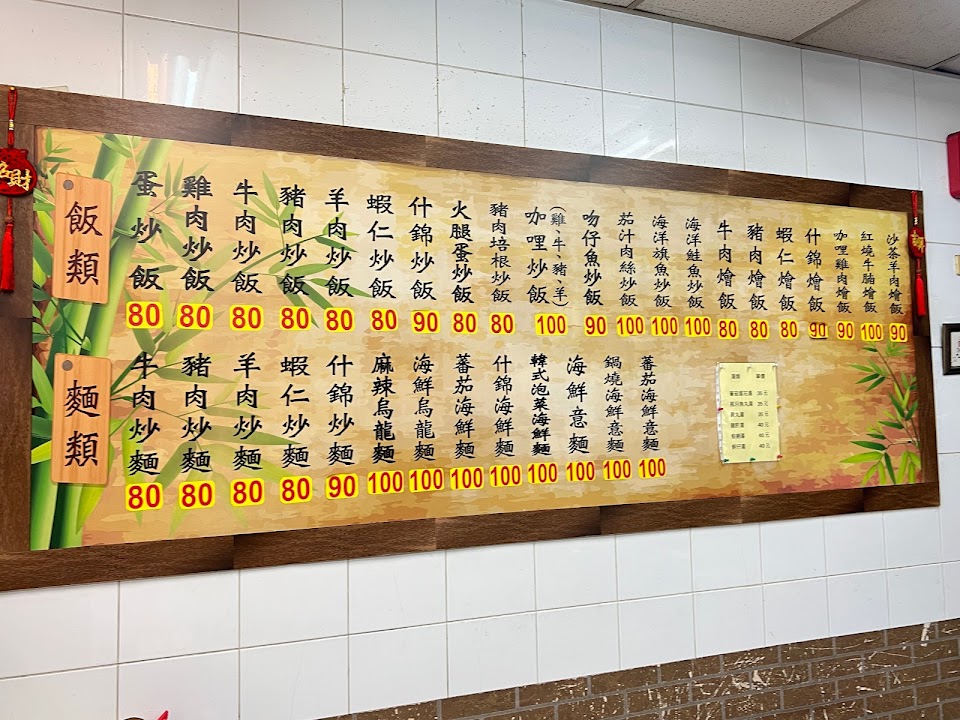 飯類
蛋炒飯 80
雞肉炒飯 80
牛肉炒飯 80
豬肉炒飯 80
羊肉炒飯 80
蝦仁炒飯 80
什錦炒飯 90
火腿蛋炒飯 80
豬肉培根炒飯 80
咖哩炒飯(雞、牛、豬、羊) 100
吻仔魚炒飯 90
茄汁肉絲炒飯 100
海洋旗魚炒飯 100
海洋鮭魚炒飯 100
牛肉燴飯 80
豬肉燴飯 80
蝦仁燴飯 80
什錦燴飯 90
咖哩雞肉燴飯 90
紅燒牛腩燴飯 100
沙茶羊肉燴飯 90
麵類
牛肉炒麵 80
豬肉炒麵 80
羊肉炒麵 80
蝦仁炒麵 80
什錦炒麵 90
麻辣烏龍麵 100
海鮮烏龍麵 100
蕃茄海鮮麵 100
什錦海鮮麵 100
韓式泡菜海鮮麵 100
海鮮意麵 100
鍋燒海鮮意麵 100
蕃茄海鮮意麵 100
財